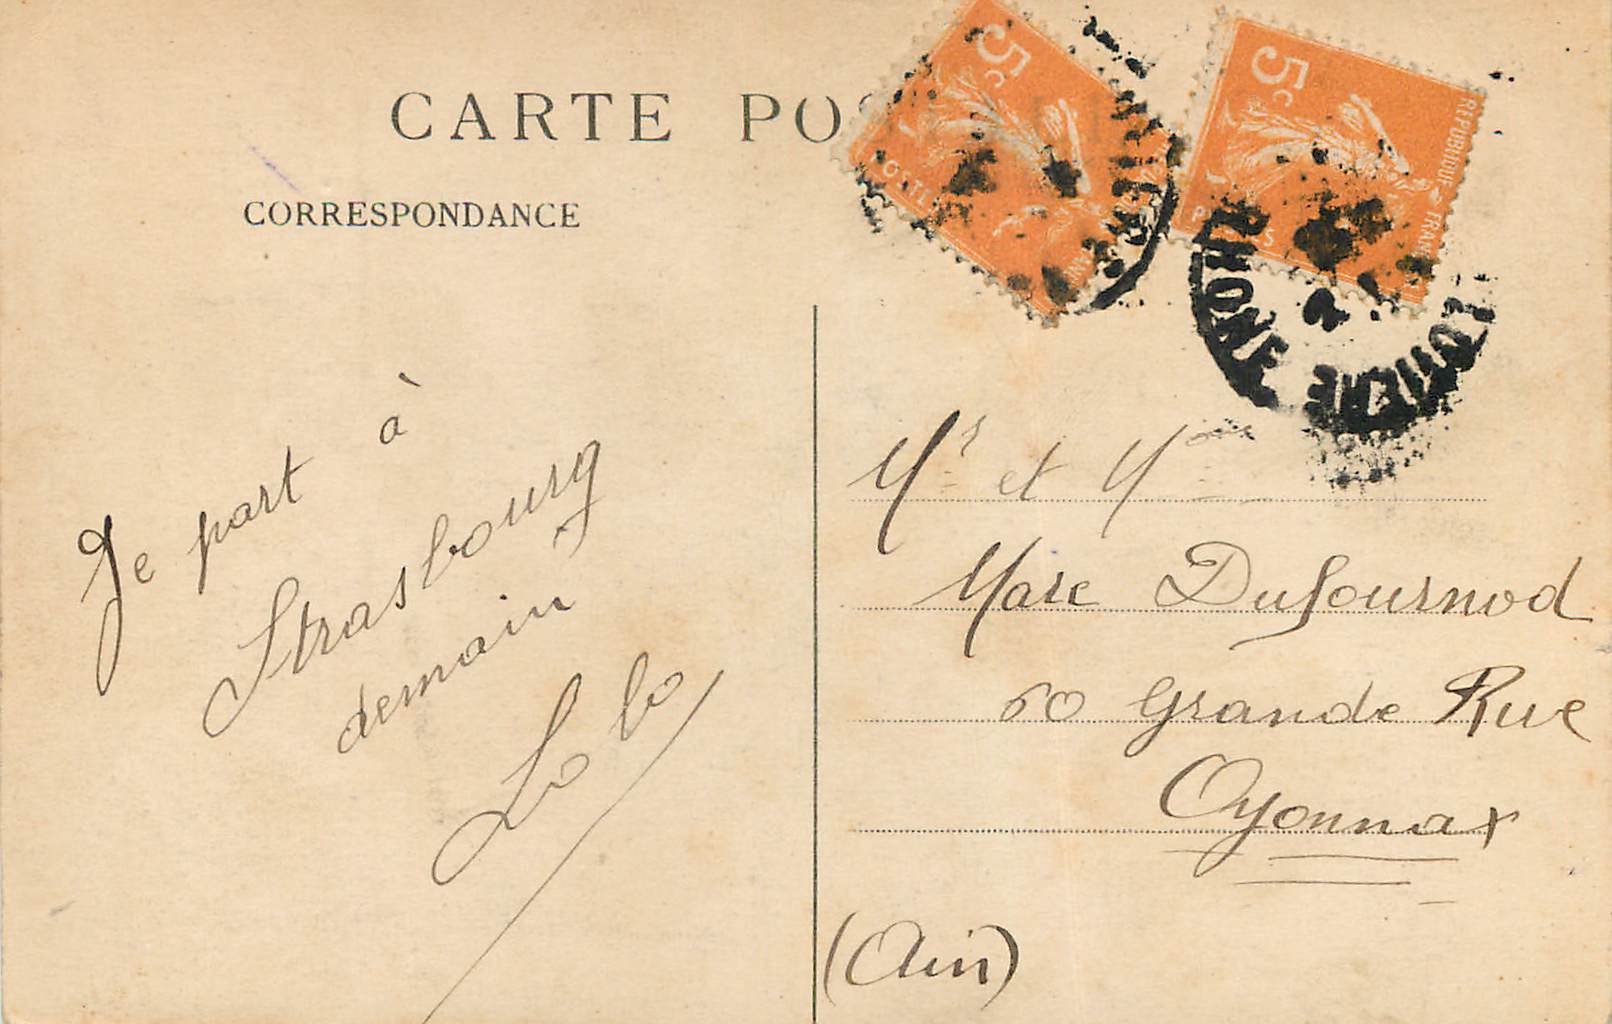 CARTE POS
CORRESPONDANCE
5c
POSTES
5c
REPUBLIQUE FRANC
POSTES
RHONE
2
Je part à
Strasbourg
demain
Lolo
Mr et Mme
Marc Dufournod
60 Grande Rue
Oyonnax
(Ain)